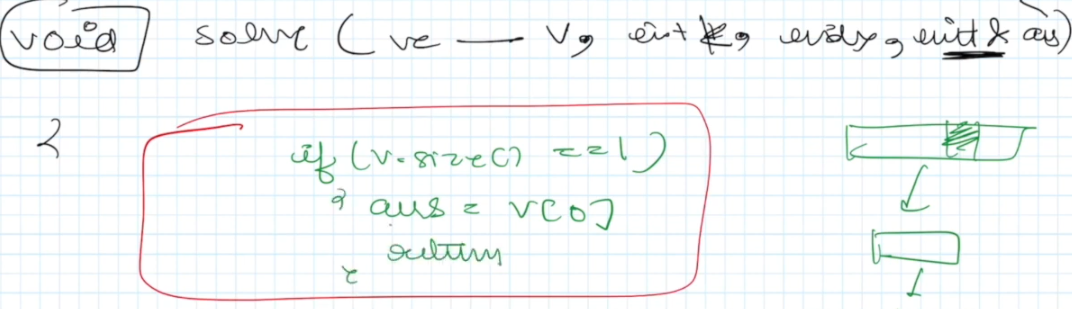 void solve ( ve — v, int k, index, int & ans)
{
if (v.size() == 1)
{ ans = v[0]
return
}